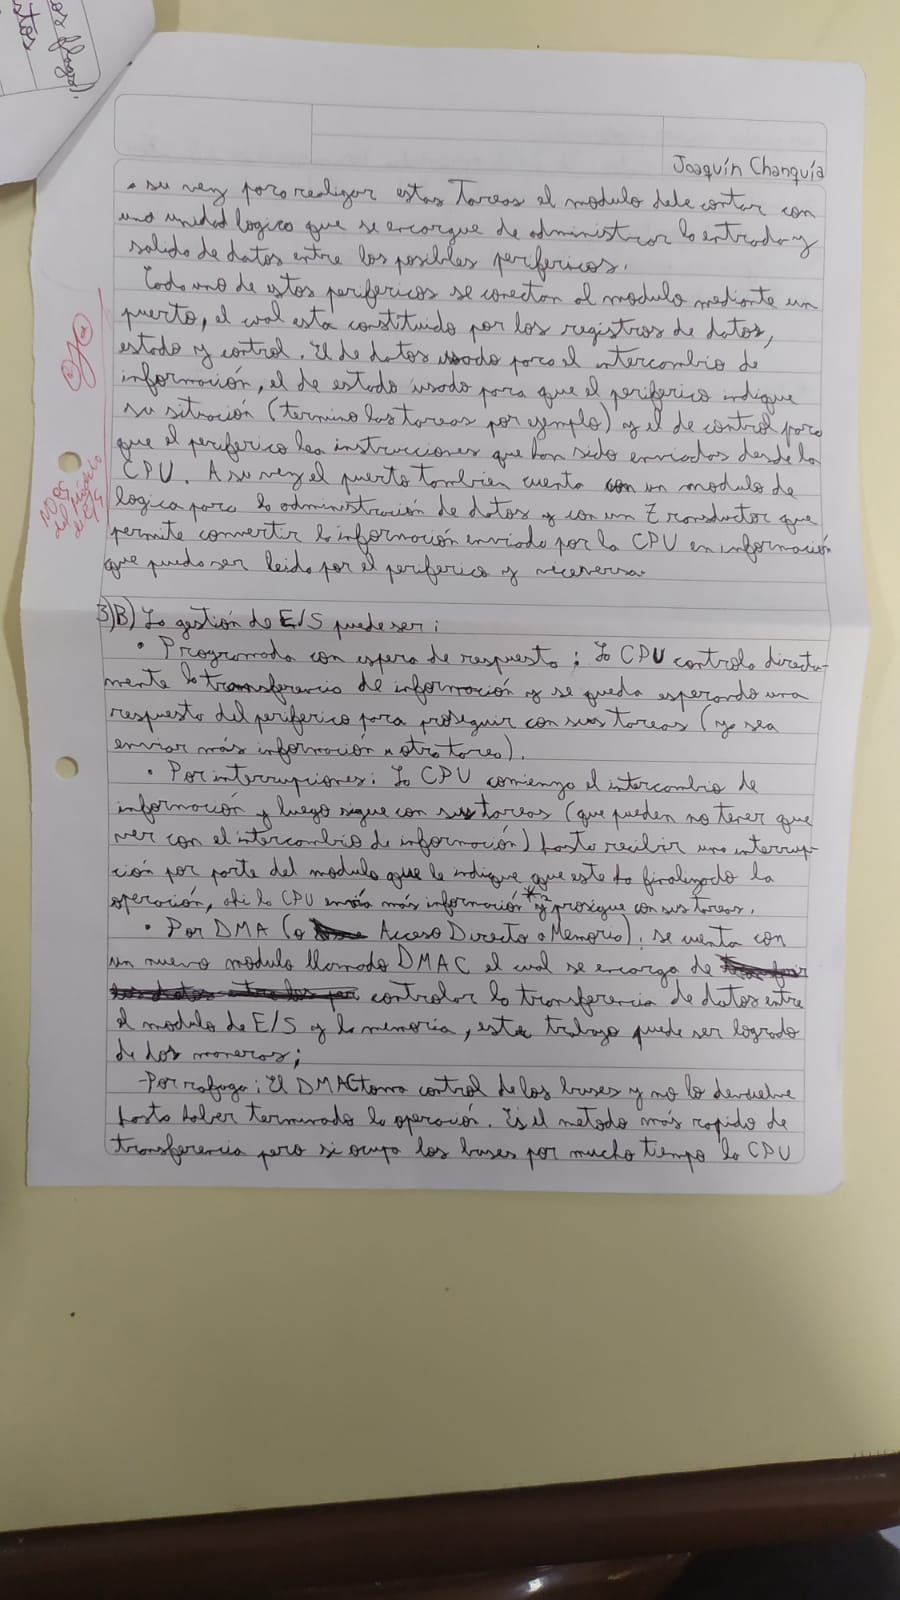 os flags).
stos
Joaquín Chanquía
a su vez para realizar estas Tareas el modulo debe contar con
una unidad logica que se encargue de administrar la entrada y
salida de datos entre los posibles perifericos.
Cada uno de estos perifericos se conectan al modulo mediante un
puerto, el cual esta constituido por los registros de datos,
estado y control. El de datos usado para el intercambio de
información, el de estado usado para que el periferico indique
su sitración (termino las tareas por ejemplo) y el de control para
que el periferico lea instrucciones que han sido enviadas desde la
CPU. A su vez el puerto tambien cuenta con un modulo de
logica para la administración de datos y con un Transductor que
permite convertir la información enviada por la CPU en información
que pueda ser leida por el periferico y viceversa.
NO es
del Módulo
de E/S
3)B) La gestión de E/S puede ser:
• Programada con espera de respuesta: La CPU controla directa-
mente la transferencia de información y se queda esperando una
respuesta del periferico para proseguir con sus tareas (ya sea
enviar más información u otra tarea).
• Por interrupciones: La CPU comienza el intercambio de
información y luego sigue con sus tareas (que pueden no tener que
ver con el intercambio de información) hasta recibir una interrup-
ción por parte del modulo que le indique que este ha finalizado la
operación, ahi la CPU envía más información*² y prosigue con sus tareas.
• Por DMA (o Acceso Directo a Memoria): se cuenta con
un nuevo modulo llamado DMAC el cual se encarga de
controlar la transferencia de datos entre
el modulo de E/S y la memoria, este trabajo puede ser logrado
de dos maneras;
-Por rafaga: El DMAC toma control de los buses y no lo devuelve
hasta haber terminado la operación. Es el metodo más rapido de
transferencia pero si ocupa los buses por mucho tiempo la CPU